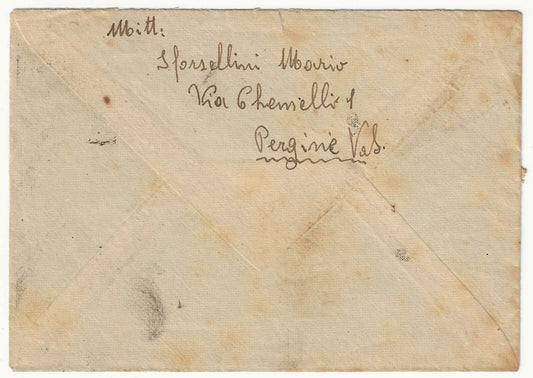 Mitt:
Sforsellini Mario
Via Chemelli 1
Pergine Vals.